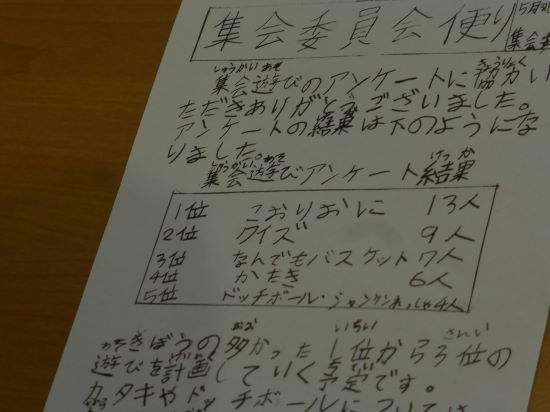 集会委員会便り
5月
集会
集会遊びのアンケートに協力い
ただきありがとうございました。
アンケートの結果は下のようにな
りました。
集会遊びアンケート結果
1位 こおりおに 13人
2位 クイズ 9人
3位 なんでもバスケット 7人
4位 かたき 6人
5位 ドッチボール・ジャンケンれっしゃ 4人
きぼうの多かった1位から3位の
遊びを計画していく予定です。
カタキやドッチボールについては